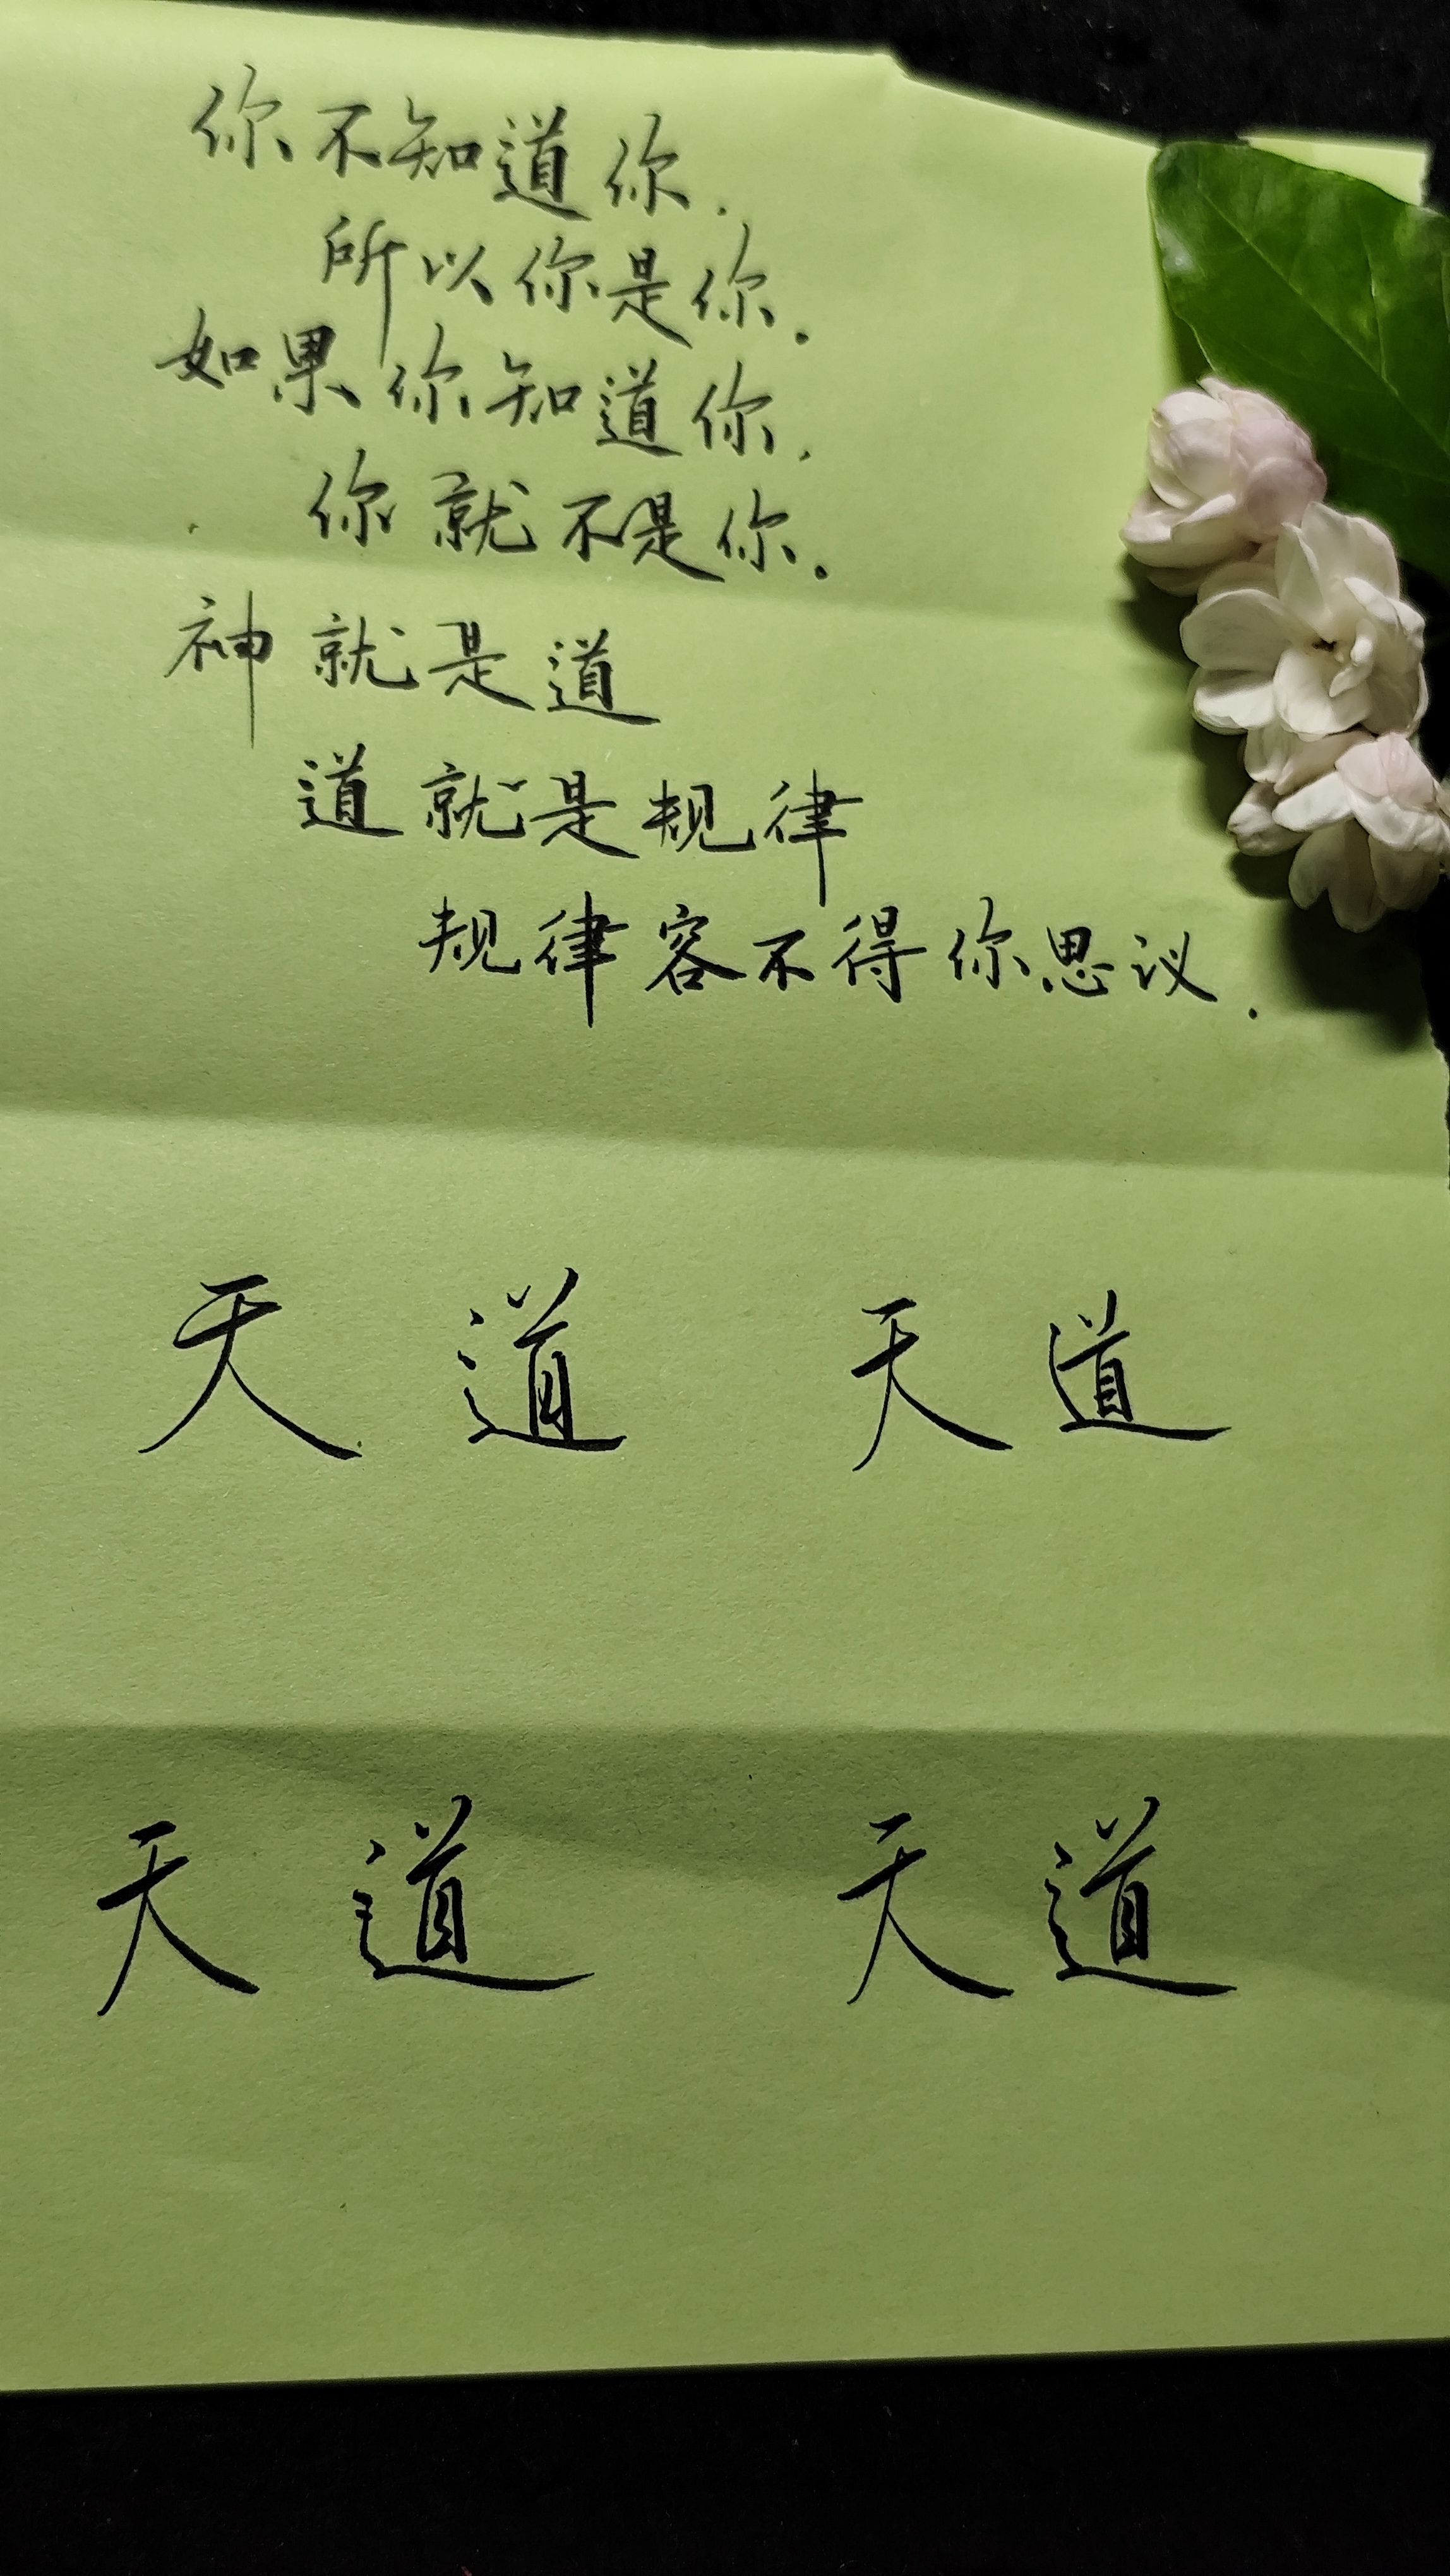 你不知道你,
所以你是你.
如果你知道你,
你就不是你.
神就是道
道就是规律
规律容不得你思议.
天道 天道
天道 天道